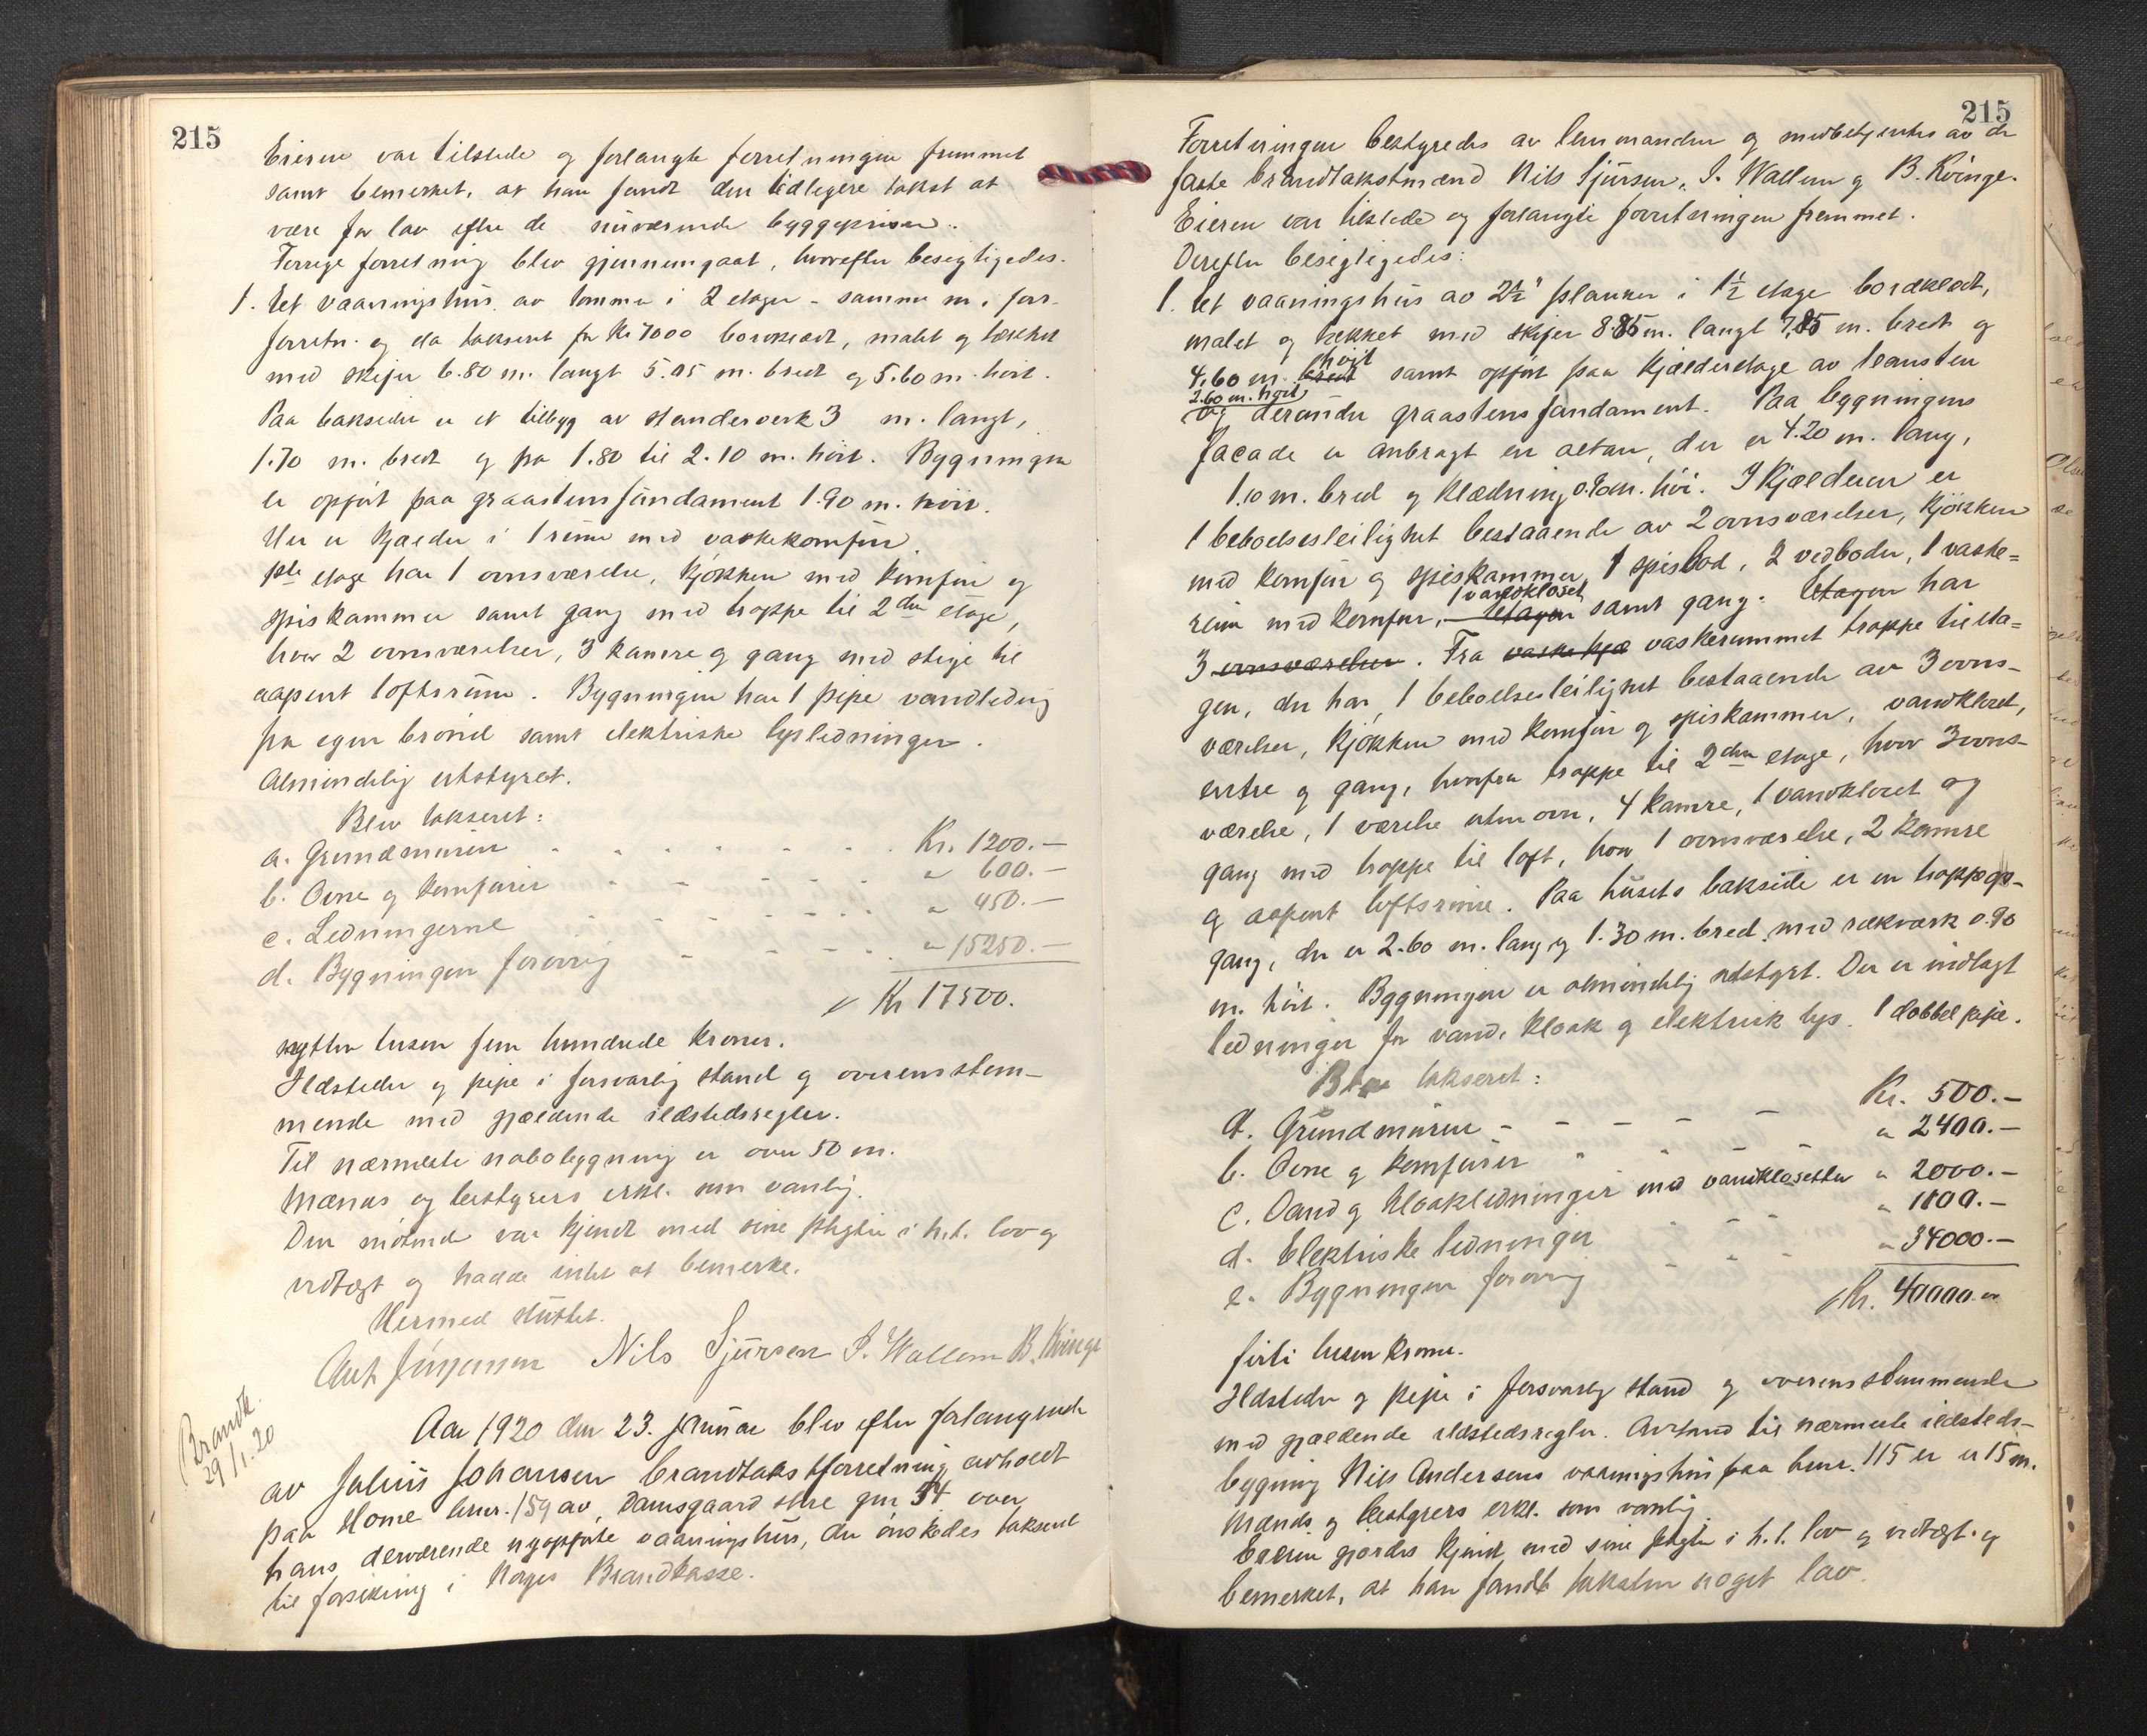 215
Eieren var tilstede og forlangte forretningen fremmet
samt bemerket, at han fandt den tidligere takst at
være for lav efter de nuværende byggepriser.
Forrige forretning blev gjennemgaat, hvorefter besigtigedes.
1. Et vaaningshus av tømmer i 2 etager - samme m. forr.
forretn. og da takseret for Kr 7000 bordklædt, malet og tækket
med skifer 6.80 m. langt 5.95 m. bredt og 5.60 m. høit.
Paa baksiden er et tilbygg av standerverk 3 m. langt,
1.70 m. bredt og fra 1.80 til 2.10 m. høit. Bygningen
er opført paa graastensfundament 1.90 m. høit.
Her er kjælder i 1 rum med vaskekomfur.
1ste etage har 1 ovnsværelse, kjøkken med komfur og
spiskammer samt gang med trappe til 2den etage,
hvor 2 ovnsværelser, 3 kamre og gang med stige til
aapent loftsrum. Bygningen har 1 pipe vandledning
fra egen brønd samt elektriske lysledninger.
Almindelig utstyret.
Blev takseret:
a. Grundmuren - - - - - - Kr. 1200.-
b. Ovne og komfurer - - - - - " 600.-
c. Ledningerne - - - - - - " 450.-
d. Bygningen forøvrig - - - - " 15250.-
Kr 17500.
sytten tusen fem hundrede kroner.
Ildsteder og pipe i forsvarlig stand og overensstem-
mende med gjældende ildstedsregler.
Til nærmeste nabobygning er over 50 m.
Mænds og bestyrers erkl. som vanlig.
Den møtende var kjendt med sine pligter i h.t. lov og
vedtægt og hadde intet at bemerke.
Hermed sluttet.
Ant Jørgensen Nils Sjursen I. Wallem B. Kvinge
Brandk.
29/1.20
Aar 1920 den 23. januar blev efter forlangende
av Julius Johansen brandtakstforretning avholdt
paa Home brnr. 159 av Damsgaard store gnr 34 over
hans derværende nyopførte vaaningshus, der ønskedes takseret
til forsikring i Norges Brandkasse.
215
Forretningen bestyredes av lensmanden og medbetjentes av de
faste brandtakstmænd Nils Sjursen, I. Wallem og B. Kvinge.
Eieren var tilstede og forlangte forretningen fremmet.
Derefter besigtigedes:
1. Et vaaningshus av 2½" planker i 1½ etage bordklædt,
malet og tækket med skifer 8.85 m. langt 7.85 m. bredt og
4.60 m. bredt høit samt opført paa kjælderetage av leansten
2.60 m. høit
og derunder graastensfundament. Paa bygningens
facade er anbragt en altan, der er 4.20 m. lang,
1.10 m. bred og klædning 0.90 m. høi. I kjælderen er
1 beboelsesleilighet bestaaende av 2 ovnsværelser, kjøkken
med komfur og spiskammer, 1 spisbod, 2 vedboder, 1 vaske=
rum med komfur, 1 vandkloset etagen samt gang. Etagen har
3 ovnsværelser. Fra vaske kjæ vaskerummet trappe til eta=
gen, der har 1 beboelsesleilighet bestaaende av 3 ovns-
værelser, kjøkken med komfur og spiskammer, vandkloset,
entre og gang, hvorfra trappe til 2den etage, hvor 3 ovns-
værelse, 1 værelse uten ovn, 4 kamre, 1 vandkloset og
gang med trappe til loft, hvor 1 ovnsværelse, 2 kamre
og aapent loftsrum. Paa husets bakside er en trappeop-
gang, der er 2.60 m. lang og 1.30 m. bred, med rækværk 0.90
m. høit. Bygningen er almindelig utstyrt. Der er indlagt
ledninger for vand, kloak og elektrisk lys. 1 dobbel pipe.
Blev takseret:
a. Grundmuren - - - - - Kr. 500.-
b. Ovne og komfurer - - - - " 2400.-
c. Vand og kloakledninger med vandklosetter " 2000.-
d. Elektriske ledninger - - - " 1100.-
e. Bygningen forøvrig - - - " 34000.-
Kr. 40000.00
førti tusen kroner.
Ildsteder og pipe i forsvarlig stand og overensstemmende
med gjældende ildstedsregler. Avstand til nærmeste ildsteds-
bygning Nils Andersens vaaningshus paa brnr. 115 er er 15 m.
Mænds og bestyrers erkl. som vanlig.
Eieren gjordes kjendt med sine pligter i h.t. lov og vedtægt og
bemerket, at han fandt taksten noget lav.